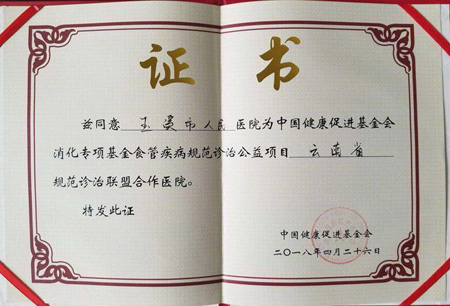 证书
兹同意 玉溪市人民 医院为中国健康促进基金会
消化专项基金食管疾病规范诊治公益项目 云南省
规范诊治联盟合作医院。
特发此证
中国健康促进基金会
二〇一八年四月二十六日